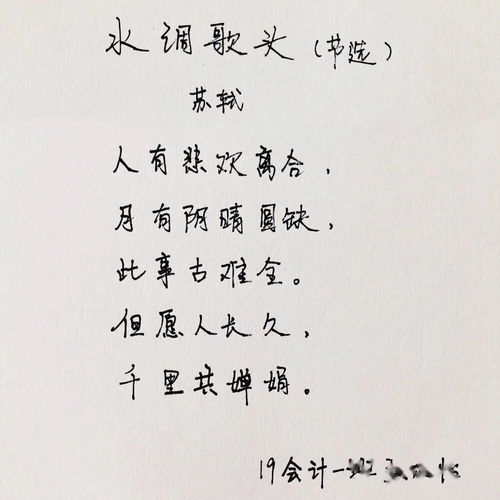 水调歌头(节选)
苏轼
人有悲欢离合,
月有阴晴圆缺,
此事古难全。
但愿人长久,
千里共婵娟。
19会计一班